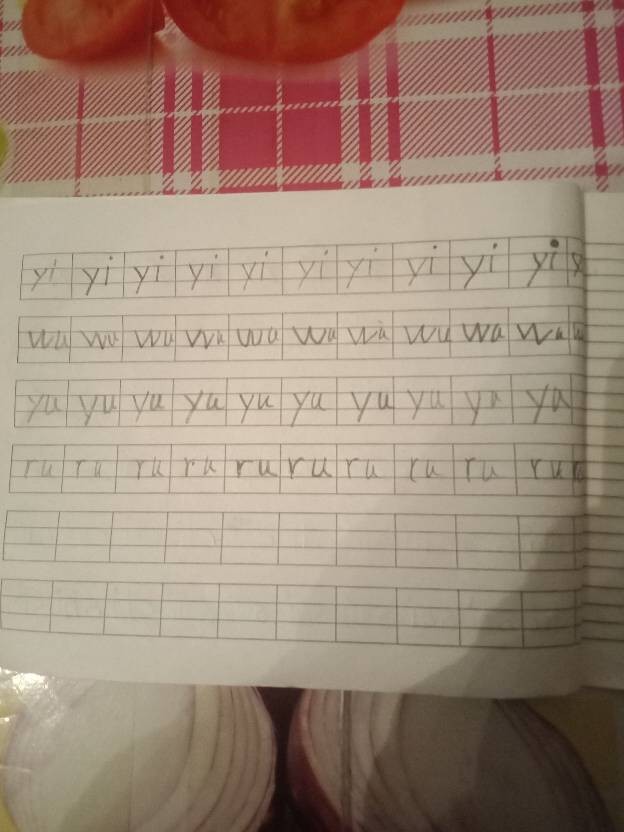 yi yi yi yi yi yi yi yi yi yi
wu wu wu wu wu wu wu wu wu wu
yu yu yu yu yu yu yu yu yu yu
ru ru ru ru ru ru ru ru ru ru